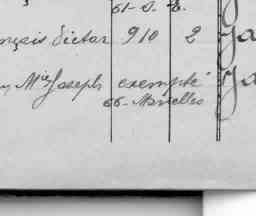 61-S. E.
nçois Victor 910 2 Ja
Mie Joseph exempté Ja
66-Marolles